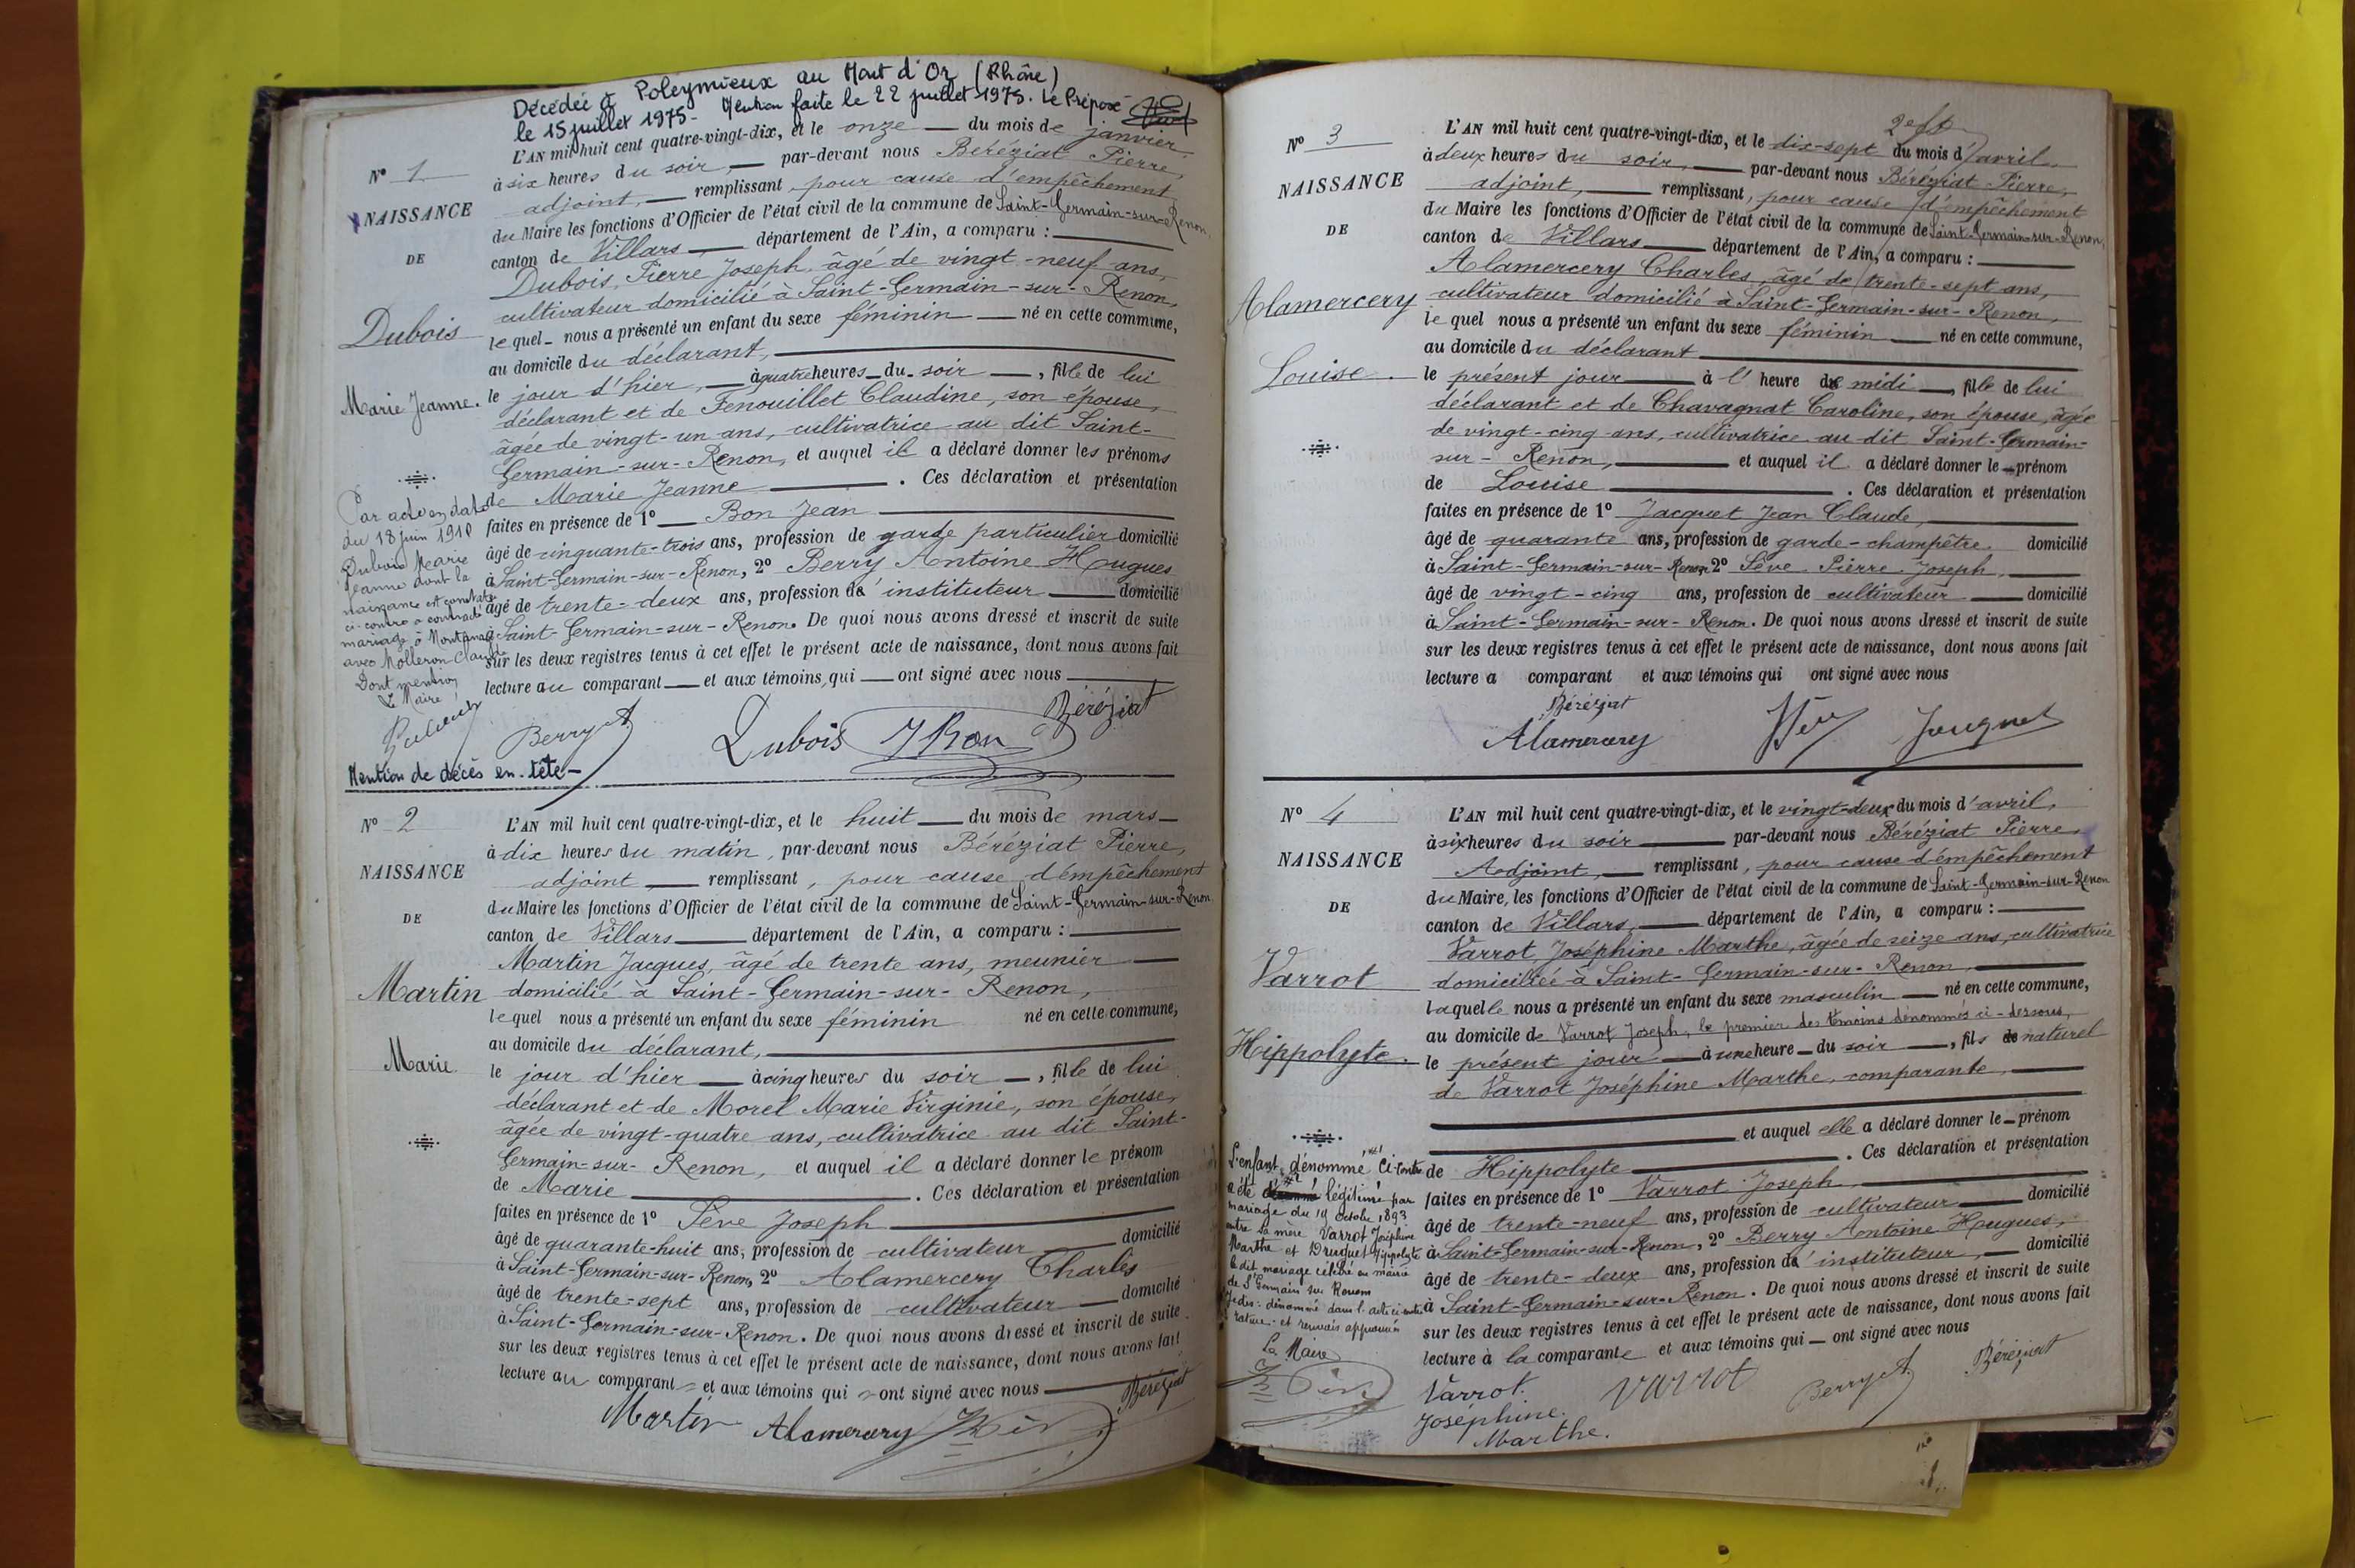 Décédée à Poleymieux au Mont d'Or (Rhône)
le 15 juillet 1975 - Mention faite le 22 juillet 1975. Le Préposé
N° 1
NAISSANCE
DE
Dubois
Marie Jeanne.
L'AN mil huit cent quatre-vingt-dix, et le onze du mois de janvier
à six heures du soir, par-devant nous Béréziat Pierre,
adjoint, remplissant, pour cause d'empêchement
du Maire les fonctions d'Officier de l'état civil de la commune de Saint-Germain-sur-Renon,
canton de Villars département de l'Ain, a comparu :
Dubois, Pierre Joseph, âgé de vingt-neuf ans,
cultivateur domicilié à Saint-Germain-sur-Renon,
lequel nous a présenté un enfant du sexe féminin né en cette commune,
au domicile du déclarant,
le jour d'hier, à quatre heures du soir, fille de lui
déclarant et de Fenouillet Claudine, son épouse,
âgée de vingt-un ans, cultivatrice au dit Saint-
Germain-sur-Renon, et auquel il a déclaré donner les prénoms
de Marie Jeanne. Ces déclaration et présentation
faites en présence de 1° Bon Jean
âgé de cinquante-trois ans, profession de garde particulier domicilié
à Saint-Germain-sur-Renon, 2° Berry Antoine Hugues
âgé de trente-deux ans, profession d'instituteur domicilié
à Saint-Germain-sur-Renon. De quoi nous avons dressé et inscrit de suite
sur les deux registres tenus à cet effet le présent acte de naissance, dont nous avons fait
lecture au comparant et aux témoins, qui ont signé avec nous
Par acte en date
du 18 juin 1910
Dubois Marie
Jeanne dont la
naissance est constatée
ci-contre a contracté
mariage à
avec Molleron Claude
Dont mention
Le Maire
Berry A
Dubois
J Bon
Béréziat
Mention de décès en-tête -
N° 2
NAISSANCE
DE
Martin
Marie
L'AN mil huit cent quatre-vingt-dix, et le huit du mois de mars
à dix heures du matin, par-devant nous Béréziat Pierre,
adjoint remplissant, pour cause d'empêchement
du Maire les fonctions d'Officier de l'état civil de la commune de Saint-Germain-sur-Renon
canton de Villars département de l'Ain, a comparu :
Martin Jacques, âgé de trente ans, meunier
domicilié à Saint-Germain-sur-Renon,
lequel nous a présenté un enfant du sexe féminin né en cette commune,
au domicile du déclarant,
le jour d'hier à cinq heures du soir, fille de lui
déclarant et de Morel Marie Virginie, son épouse,
âgée de vingt-quatre ans, cultivatrice au dit Saint-
Germain-sur-Renon, et auquel il a déclaré donner le prénom
de Marie. Ces déclaration et présentation
faites en présence de 1° Sève Joseph
âgé de quarante-huit ans, profession de cultivateur domicilié
à Saint-Germain-sur-Renon, 2° Alamercery Charles
âgé de trente-sept ans, profession de cultivateur domicilié
à Saint-Germain-sur-Renon. De quoi nous avons dressé et inscrit de suite
sur les deux registres tenus à cet effet le présent acte de naissance, dont nous avons fait
lecture au comparant et aux témoins qui ont signé avec nous
Béréziat
Martin
Alamercery
N° 3
NAISSANCE
DE
Alamercery
Louise.
L'AN mil huit cent quatre-vingt-dix, et le dix-sept du mois d'avril
à deux heures du soir, par-devant nous Béréziat Pierre,
adjoint, remplissant, pour cause d'empêchement
du Maire les fonctions d'Officier de l'état civil de la commune de Saint-Germain-sur-Renon,
canton de Villars département de l'Ain, a comparu :
Alamercery Charles, âgé de trente-sept ans,
cultivateur domicilié à Saint-Germain-sur-Renon,
lequel nous a présenté un enfant du sexe féminin né en cette commune,
au domicile du déclarant
le présent jour à l'heure de midi, fille de lui
déclarant et de Chavagnat Caroline, son épouse, âgée
de vingt-cinq ans, cultivatrice au dit Saint-Germain-
sur-Renon, et auquel il a déclaré donner le prénom
de Louise. Ces déclaration et présentation
faites en présence de 1° Jacquet Jean Claude,
âgé de quarante ans, profession de garde-champêtre, domicilié
à Saint-Germain-sur-Renon 2° Sève Pierre Joseph,
âgé de vingt-cinq ans, profession de cultivateur domicilié
à Saint-Germain-sur-Renon. De quoi nous avons dressé et inscrit de suite
sur les deux registres tenus à cet effet le présent acte de naissance, dont nous avons fait
lecture a comparant et aux témoins qui ont signé avec nous
Béréziat
Alamercery
N° 4
NAISSANCE
DE
Varrot
Hippolyte.
L'AN mil huit cent quatre-vingt-dix, et le vingt-deux du mois d'avril,
à six heures du soir par-devant nous Béréziat Pierre,
Adjoint, remplissant, pour cause d'empêchement
du Maire, les fonctions d'Officier de l'état civil de la commune de Saint-Germain-sur-Renon
canton de Villars, département de l'Ain, a comparu :
Varrot, Joséphine Marthe, âgée de seize ans, cultivatrice
domiciliée à Saint-Germain-sur-Renon,
laquelle nous a présenté un enfant du sexe masculin né en cette commune,
au domicile de Varrot Joseph, le premier des témoins dénommés ci-dessous,
le présent jour à une heure du soir, fils de naturel
de Varrot Joséphine Marthe, comparante,
et auquel elle a déclaré donner le prénom
de Hippolyte. Ces déclaration et présentation
faites en présence de 1° Varrot Joseph
âgé de trente-neuf ans, profession de cultivateur domicilié
à Saint-Germain-sur-Renon, 2° Berry Antoine Hugues,
âgé de trente-deux ans, profession d'instituteur, domicilié
à Saint-Germain-sur-Renon. De quoi nous avons dressé et inscrit de suite
sur les deux registres tenus à cet effet le présent acte de naissance, dont nous avons fait
lecture à la comparante et aux témoins qui ont signé avec nous
L'enfant dénommé ci-contre
a été légitimé par
mariage du 19 octobre 1893
entre sa mère Varrot Joséphine
Marthe et Druguet Hippolyte
le dit mariage célébré en mairie
de St Germain sur Renom
dénommé dans l'acte ci-contre
rature et renvois approuvés
Le Maire
Varrot.
Joséphine.
Marthe.
Varrot
Berry A
Béréziat